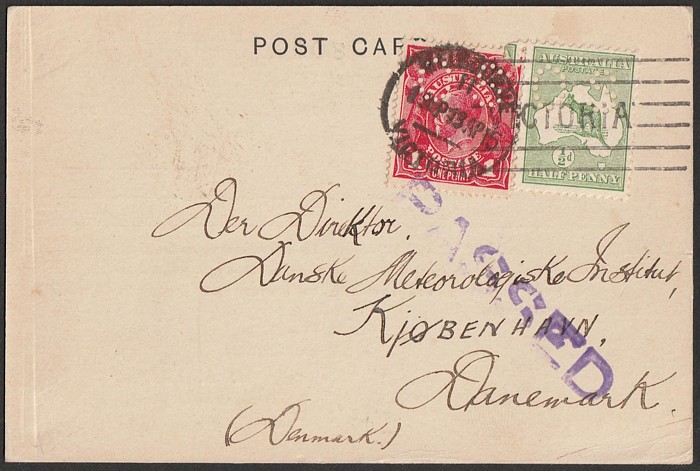 POST CAR
AUSTRALIA
POSTAGE
1 ONE PENNY 1
AUSTRALIA
POSTAGE
½d
HALFPENNY
VICTORIA
PASSED
Der Direktor,
Danske Meteorologiske Institut,
KJØBENHAVN,
Danemark.
(Denmark.)